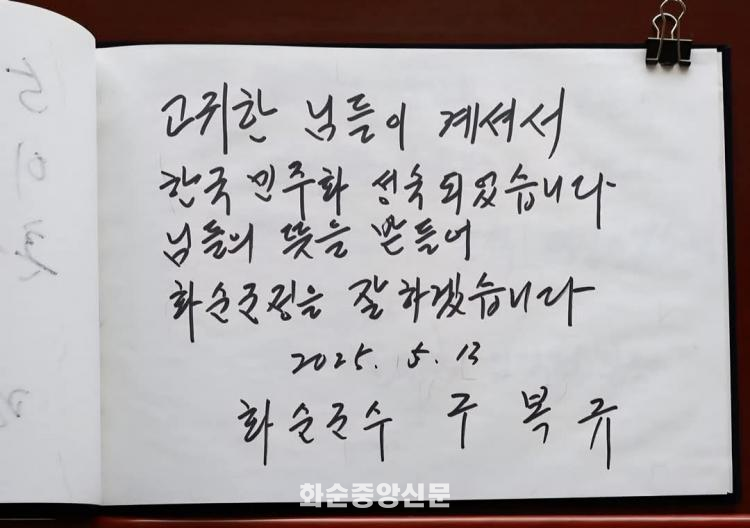 고귀한 님들이 계셔서
한국 민주화 성숙 되었습니다
님들의 뜻을 받들어
화순군정을 잘 하겠습니다
2025. 5. 13
화순군수 구복규
화순중앙신문